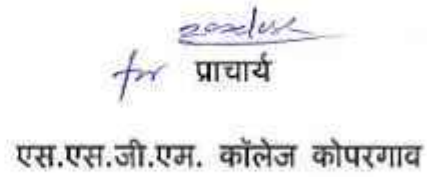 for प्राचार्य
एस.एस.जी.एम. कॉलेज कोपरगाव